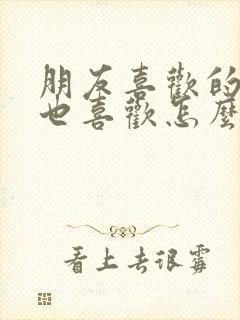 朋友喜歡的
也喜歡怎麼
看上去很霉